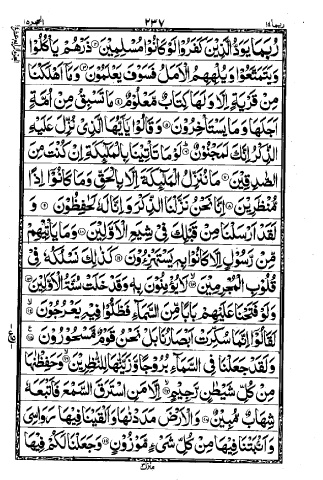 ربما ١٤ ٢٣٧ الحجر ١٥
رُبَمَا يَوَدُّ الَّذِيْنَ كَفَرُوْا لَوْ كَانُوْا مُسْلِمِيْنَ ۝ ذَرْهُمْ يَاْكُلُوْا
وَيَتَمَتَّعُوْا وَيُلْهِهِمُ الْاَمَلُ فَسَوْفَ يَعْلَمُوْنَ ۝ وَمَاۤ اَهْلَكْنَا
مِنْ قَرْيَةٍ اِلَّا وَلَهَا كِتَابٌ مَّعْلُوْمٌ ۝ مَا تَسْبِقُ مِنْ اُمَّةٍ
اَجَلَهَا وَمَا يَسْتَاْخِرُوْنَ ۝ وَقَالُوْا يٰۤاَيُّهَا الَّذِيْ نُزِّلَ عَلَيْهِ
الذِّكْرُ اِنَّكَ لَمَجْنُوْنٌ ۝ لَوْ مَا تَاْتِيْنَا بِالْمَلٰٓئِكَةِ اِنْ كُنْتَ مِنَ
الصّٰدِقِيْنَ ۝ مَا نُنَزِّلُ الْمَلٰٓئِكَةَ اِلَّا بِالْحَقِّ وَمَا كَانُوْۤا اِذًا
مُّنْظَرِيْنَ ۝ اِنَّا نَحْنُ نَزَّلْنَا الذِّكْرَ وَاِنَّا لَهٗ لَحٰفِظُوْنَ ۝ وَ
لَقَدْ اَرْسَلْنَا مِنْ قَبْلِكَ فِيْ شِيَعِ الْاَوَّلِيْنَ ۝ وَمَا يَاْتِيْهِمْ
مِّنْ رَّسُوْلٍ اِلَّا كَانُوْا بِهٖ يَسْتَهْزِءُوْنَ ۝ كَذٰلِكَ نَسْلُكُهٗ فِيْ
قُلُوْبِ الْمُجْرِمِيْنَ ۝ لَا يُؤْمِنُوْنَ بِهٖ وَقَدْ خَلَتْ سُنَّةُ الْاَوَّلِيْنَ ۝
وَلَوْ فَتَحْنَا عَلَيْهِمْ بَابًا مِّنَ السَّمَآءِ فَظَلُّوْا فِيْهِ يَعْرُجُوْنَ ۝
لَقَالُوْۤا اِنَّمَا سُكِّرَتْ اَبْصَارُنَا بَلْ نَحْنُ قَوْمٌ مَّسْحُوْرُوْنَ ۝
وَلَقَدْ جَعَلْنَا فِي السَّمَآءِ بُرُوْجًا وَّزَيَّنّٰهَا لِلنّٰظِرِيْنَ ۝ وَحَفِظْنٰهَا
مِنْ كُلِّ شَيْطٰنٍ رَّجِيْمٍ ۝ اِلَّا مَنِ اسْتَرَقَ السَّمْعَ فَاَتْبَعَهٗ
شِهَابٌ مُّبِيْنٌ ۝ وَالْاَرْضَ مَدَدْنٰهَا وَاَلْقَيْنَا فِيْهَا رَوَاسِيَ
وَاَنْۢبَتْنَا فِيْهَا مِنْ كُلِّ شَيْءٍ مَّوْزُوْنٍ ۝ وَجَعَلْنَا لَكُمْ فِيْهَا